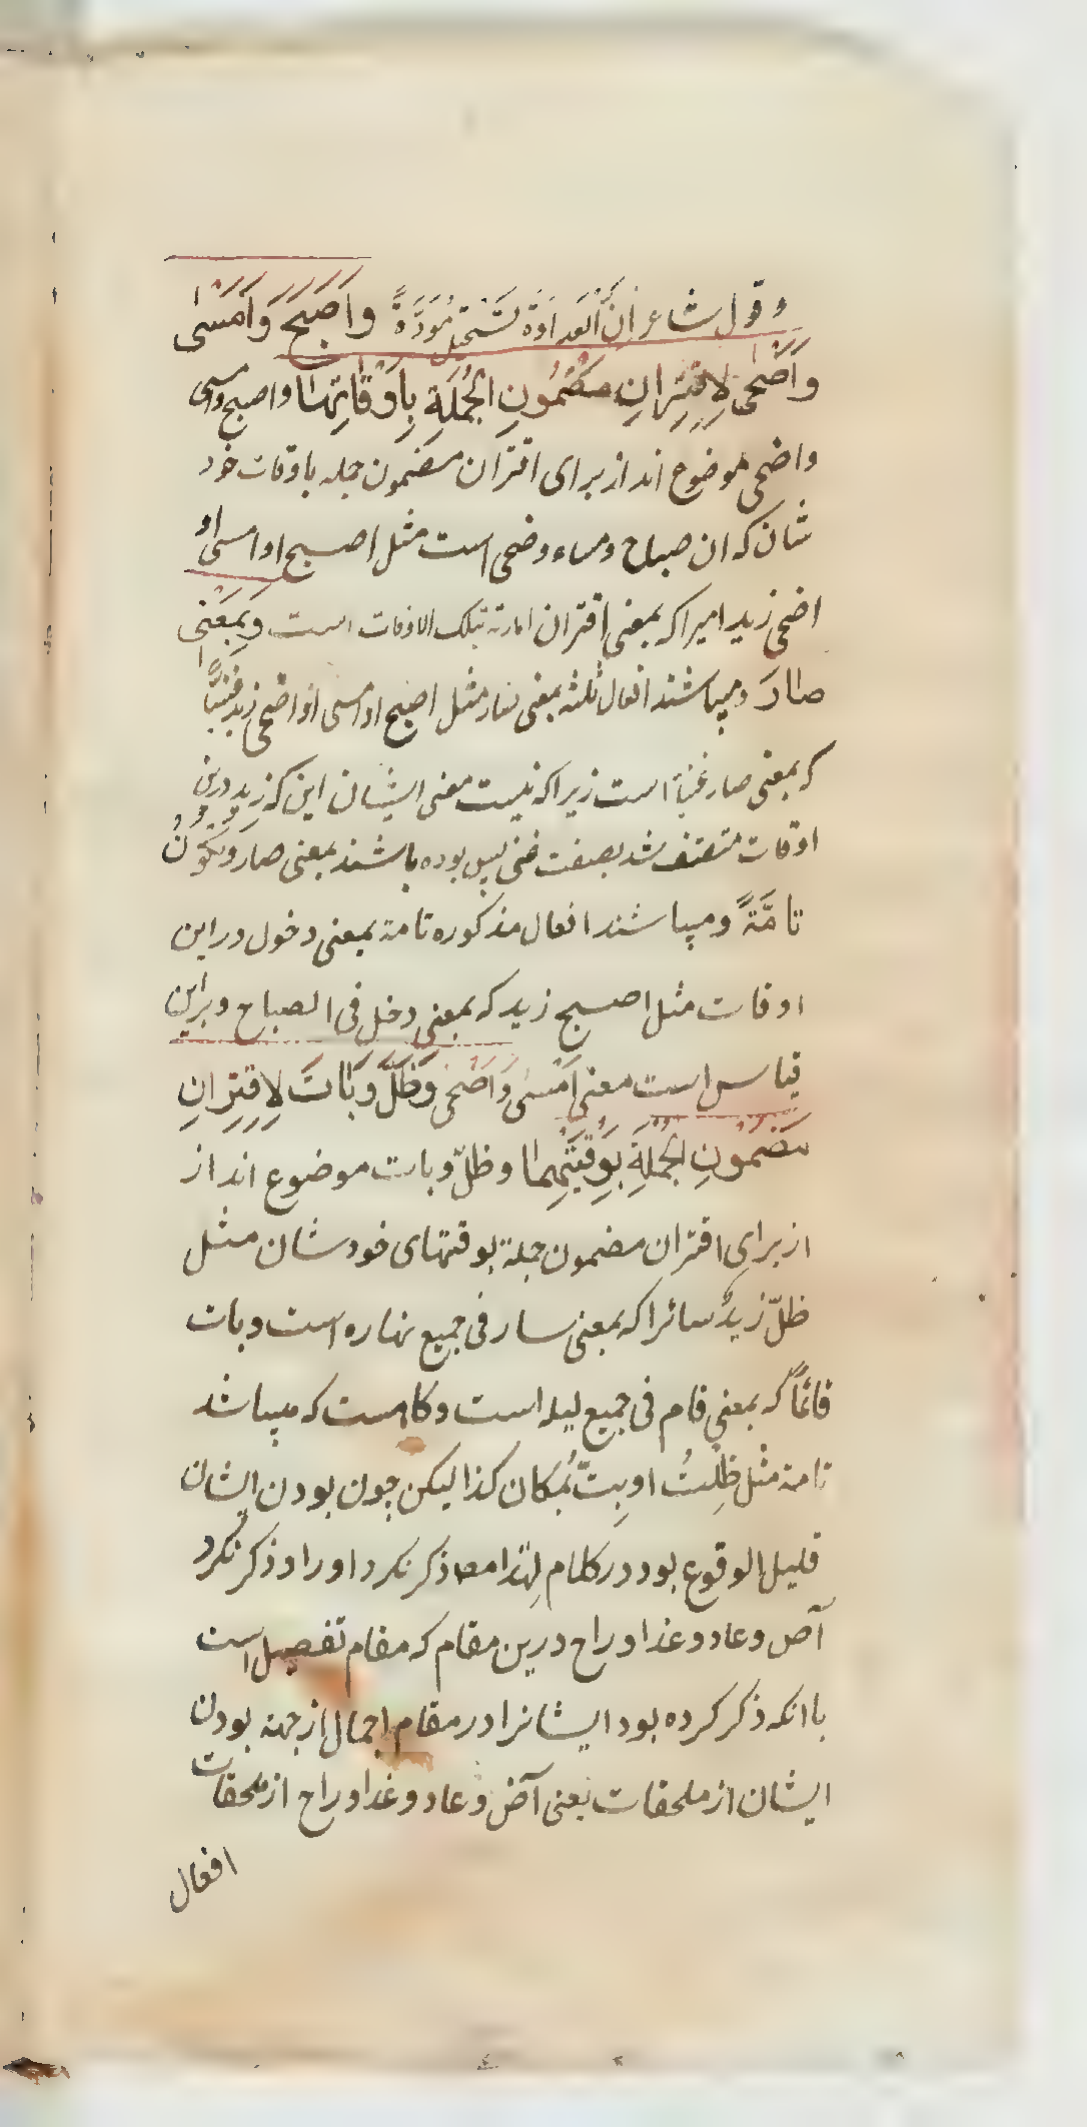 وقول شاعر اِنَّ اَلْعَداوَةَ تَسْتَحِيلُ مُوَدَّةً وَاَصْبَحَ وَاَمْسٰى
وَاَضْحٰى لِاِقْتِرانِ مَضْمُونِ الْجُمْلَةِ بِاَوْقاتِهٰا واصبح وامسی
واضحی موضوع اند از برای اقتران مضمون جمله باوقات خود
شان که ان صباح ومساء وضحی است مثل اصبح او امسی او
اضحی زید امیرا که بمعنی اقتران امارته بتلک الاوقات است وَبِمَعْنٰى
صٰارَ ومیباشند افعال ثلثه بمعنی صار مثل اصبح او امسی او اضحی زید غنیّاً
که بمعنی صار غنیاً است زیرا که نیست معنی ایشان این که زید درین
اوقات متصف شد بصفت غنی پس بوده باشند بمعنی صار وَيَكُونُ
تامَّةً ومیباشند افعال مذکوره تامة بمعنی دخول در این
اوقات مثل اصبح زید که بمعنی دخل فی الصباح وبر این
قیاس است معنی اَمْسٰى وَاَضْحٰى وَظَلَّ وَبٰاتَ لِاِقْتِرانِ
مَضْمُونِ الْجُمْلَةِ بِوَقْتَيْهِمٰا وظلّ وبات موضوع اند از
از برای اقتران مضمون جمله بوقتهای خودشان مثل
ظلّ زیدٌ سائرا که بمعنی سار فی جمیع نهاره است وبات
قائماً که بمعنی قام فی جمیع لیله است وکاهست که میباشد
تامة مثل ظِلِلتُ او بِتّ بمکان کذا لیکن چون بودن ایشان
قلیل الوقوع بود در کلام لهذا مصـ ذکر نکرد او را وذکر نکرد
آض وعاد وغدا وراح درین مقام که مقام تفصیل است
با انکه ذکر کرده بود ایشانرا در مقام اجمال از جهة بودن
ایشان از ملحقات یعنی آض وعاد وغدا وراح از ملحقات
افعال